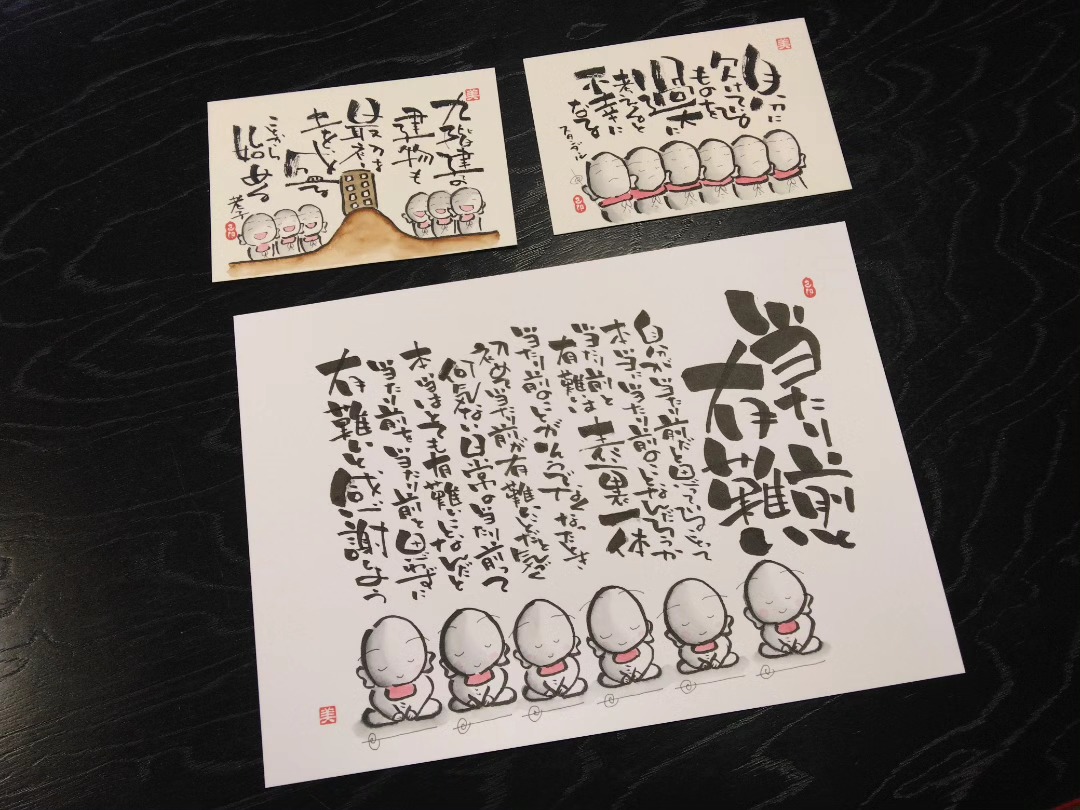 九階建の
建物も
最初は
盛る
ことから
始める
老子
美
自分に
欠けている
ものを
過大に
考えると
不幸に
なる
美
当たり前と
有難い
自分が当たり前だと思っているからって
本当に当たり前のことなんだろうか
当たり前と
有難いは表裏一体
当たり前のことがそうでなくなったとき
初めて当たり前が有難いことだと気づく
何気ない日常の当たり前って
本当はとても有難いことなんだと
当たり前を当たり前と思わずに
有難いと感謝しよう
美